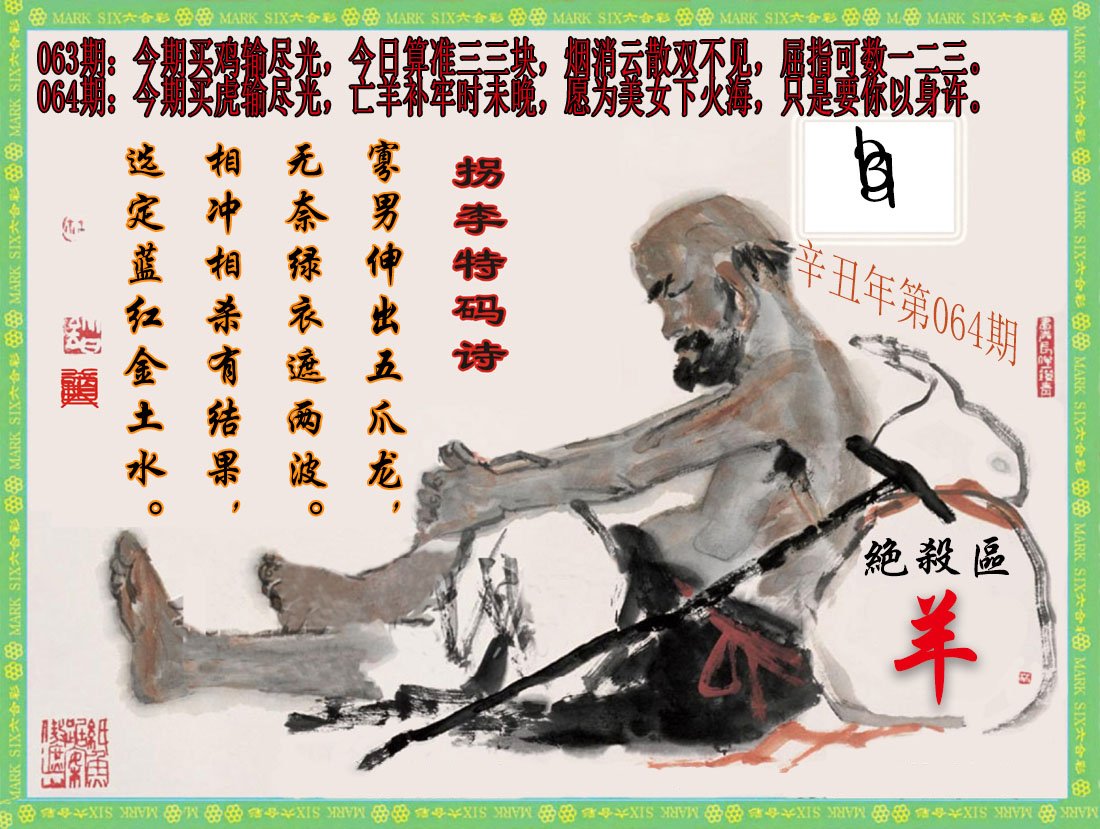 MARK SIX六合彩
063期：今期买鸡输尽光，今日算准三三块，烟消云散双不见，屈指可数一二三。
064期：今期买虎输尽光，亡羊补牢时未晚，愿为美女下火海，只是要你以身许。
拐李特码诗
寡男伸出五爪龙，
无奈绿衣遮两波。
相冲相杀有结果，
选定蓝红金土水。
辛丑年第064期
絕殺區
羊